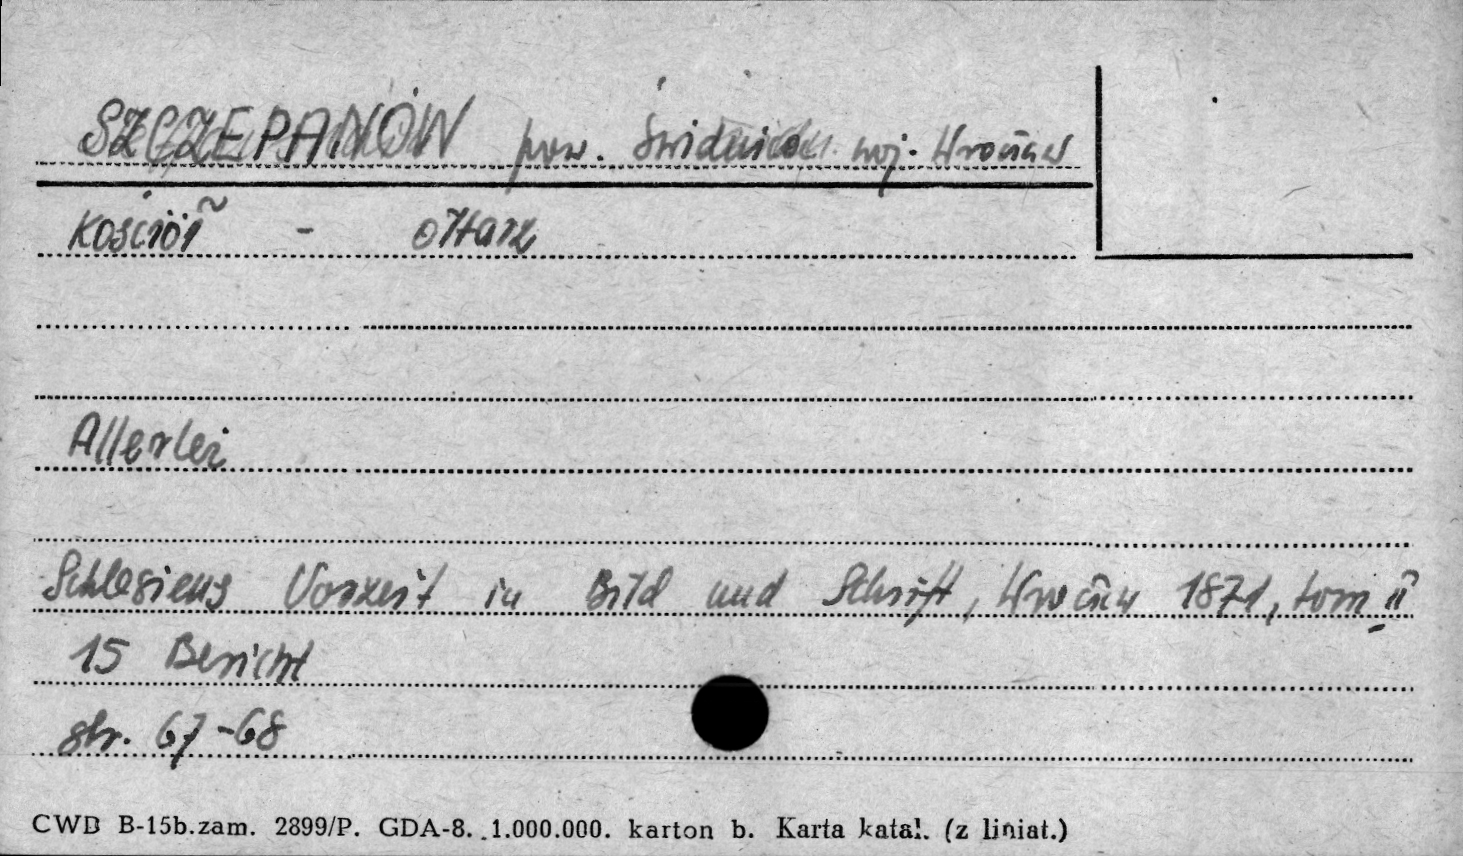 SZCZEPANÓW pow. Świdnica woj. Wrocław
Kościół - ołtarz
Allerlei
Schlesiens Vorzeit in Bild und Schrift, Wrocław 1871, tom II
15 Bericht
str. 67-68
CWD B-15b.zam. 2899/P. GDA-8. 1.000.000. karton b. Karta katal. (z liniat.)